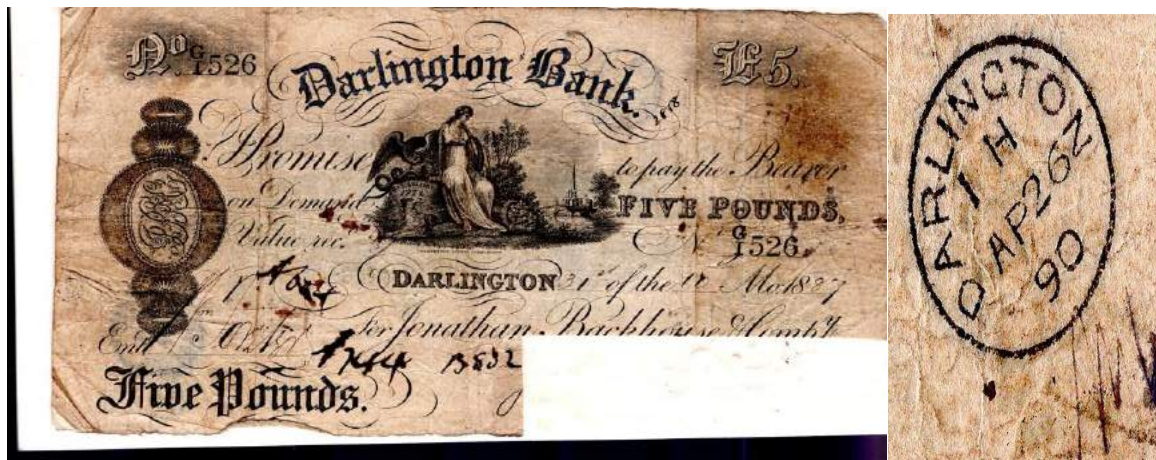 No. G/1526 £5.
Darlington Bank.
I Promise to pay the Bearer
on Demand FIVE POUNDS,
Value rec. N G/1526.
DARLINGTON 31st of the 12 Mo. 1827
For Jonathan Backhouse & Comp.y
Ent.d
Five Pounds.
DARLINGTON
1 H
AP 26
90